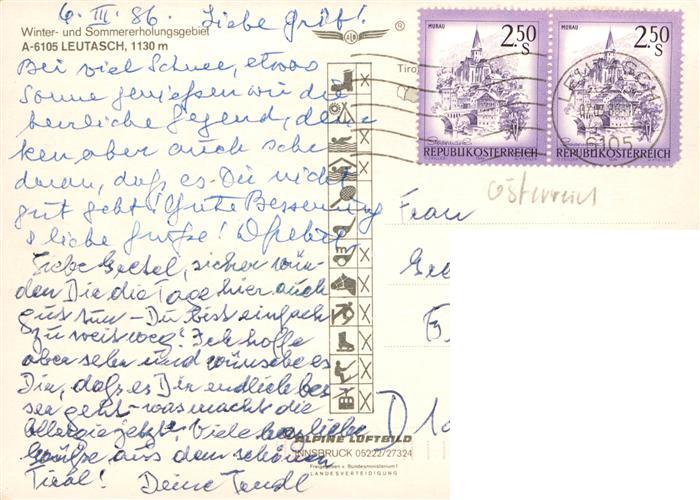 6. III. 86. Liebe
Winter- und Sommererholungsgebiet
A-6105 LEUTASCH, 1130 m
Bei viel Schnee, etwas
Sonne genießen wir die
herrliche Gegend,
ken aber auch sehr
daran, daß es Dir nicht
gut geht! Gute Besserung
& liebe Grüße!
Liebe Gretel, sicher wür-
den Dir die Tage hier auch
gut tun – Du bist einfach
zu weit weg! Ich hoffe
aber sehr und wünsche es
Dir, daß es Dir endlich bes-
ser geht – was macht die
Allergie jetzt? Viele herzliche
Grüße aus dem schönen
Tirol! Deine
Tiro
MURAU
2.50
S
REPUBLIK ÖSTERREICH
MURAU
2.50
S
REPUBLIK ÖSTERREICH
LEUTASCH
6105
Österreich
Frau
D
ALPINE LUFTBILD
INNSBRUCK 05222/27324
Freigegeben v. Bundesministerium f.
LANDESVERTEIDIGUNG